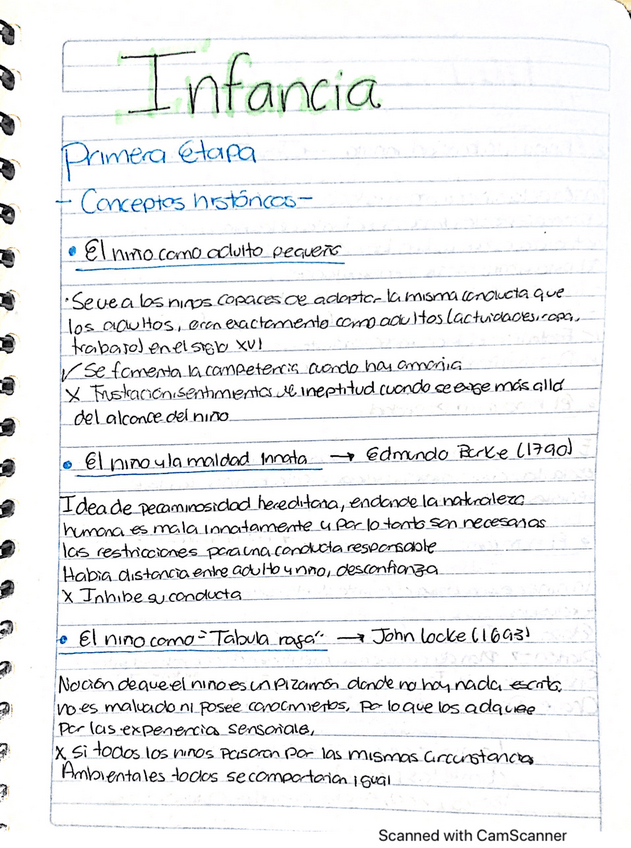 Infancia
Primera Etapa
- Conceptos históricos -
• El niño como adulto pequeño
· Se ve a los niños capaces de adoptar la misma conducta que
los adultos, eran exactamente como adultos (actividades, ropa,
trabajo) en el siglo XVI
✓ Se fomenta la competencia cuando hay armonia
X Frustración, sentimientos de ineptitud cuando se exige más alla
del alcance del niño
• El niño y la maldad Innata → Edmundo Burke (1790)
Idea de pecaminosidad hereditaria, en donde la naturaleza
humana es mala innatamente y por lo tanto son necesarias
las restricciones para una conducta responsable
Habia distancia entre adulto y niño, desconfianza
X Inhibe su conducta
• El niño como "Tabula rasa" → John Locke (1693)
Noción de que el niño es un Pizarrón donde no hay nada escrito,
no es malvado ni posee conocimientos, por lo que los adquiere
por las experiencia sensoriales,
X si todos los niños pasaran por las mismas circunstancias
Ambientales todos se comportarian igual
Scanned with CamScanner